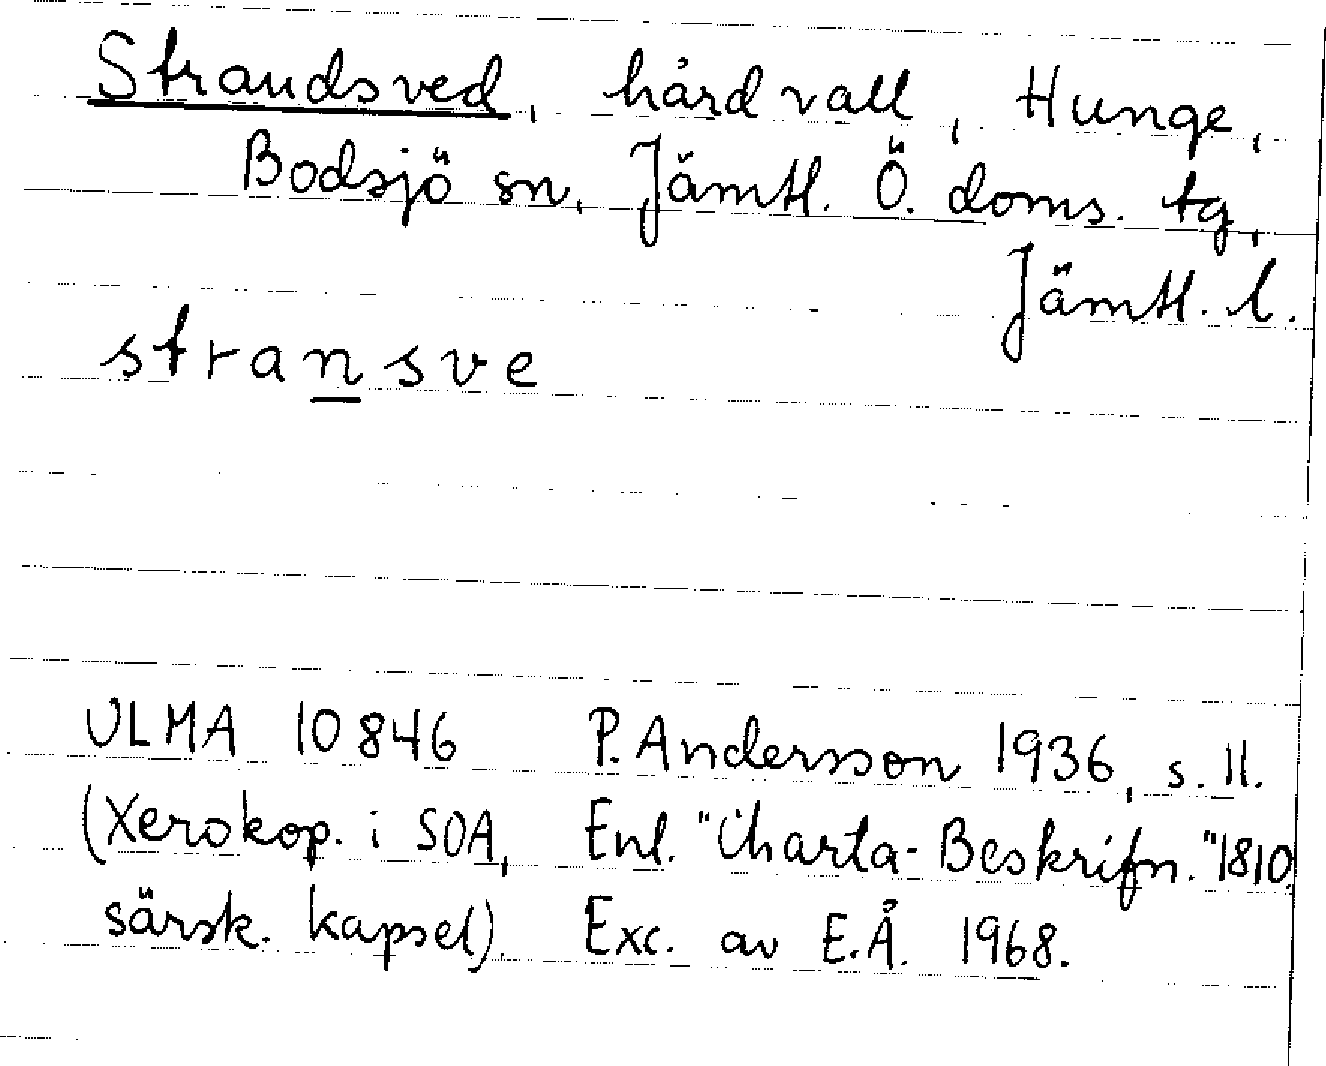 Strandsved, hårdvall, Hunge,
Bodsjö sn, Jämtl. Ö. doms. tg,
Jämtl. l.
stransve
ULMA 10846 P. Andersson 1936, s. 11.
(Xerokop. i SOA, Enl. "Charta-Beskrifn." 1810,
särsk. kapsel). Exc. av E.Å. 1968.